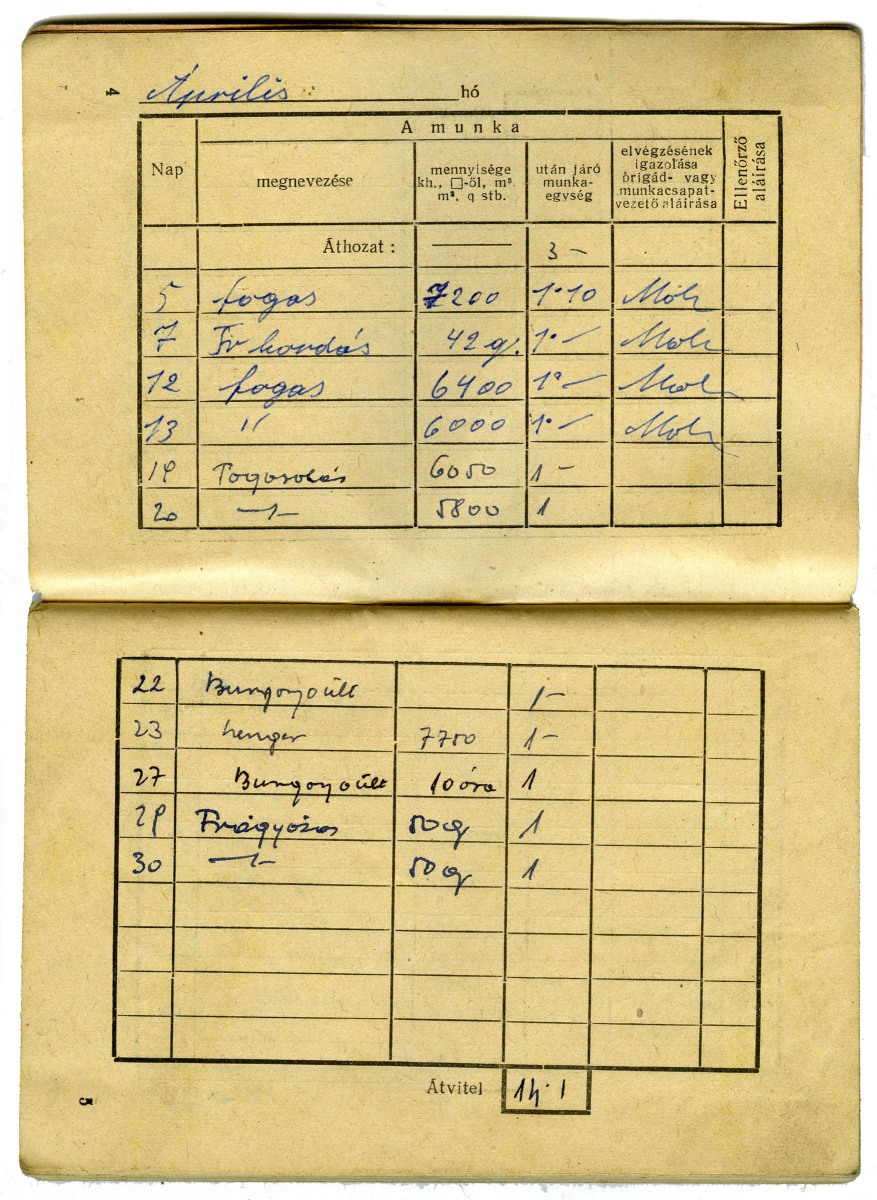 4
Április hó
A munka
Nap megnevezése mennyisége kh., □-öl, m³ m², q stb. után járó munka-egység elvégzésének igazolása brigád- vagy munkacsapat-vezető aláírása Ellenőrző aláírása
Áthozat : — 3 –
5 fogas 7200 1·10 Molr
7 hordás 42 q. 1·–
12 fogas 6400 1·–
13 〃 6000 1·–
19 Fogasolás 6050 1 –
20 –〃– 5800 1
22 Burgonyaült 1 –
23 henger 7750 1 –
27 Burgonyaült 10 óra 1
29 50 q 1
30 –〃– 50 q 1
Átvitel 14·1
5